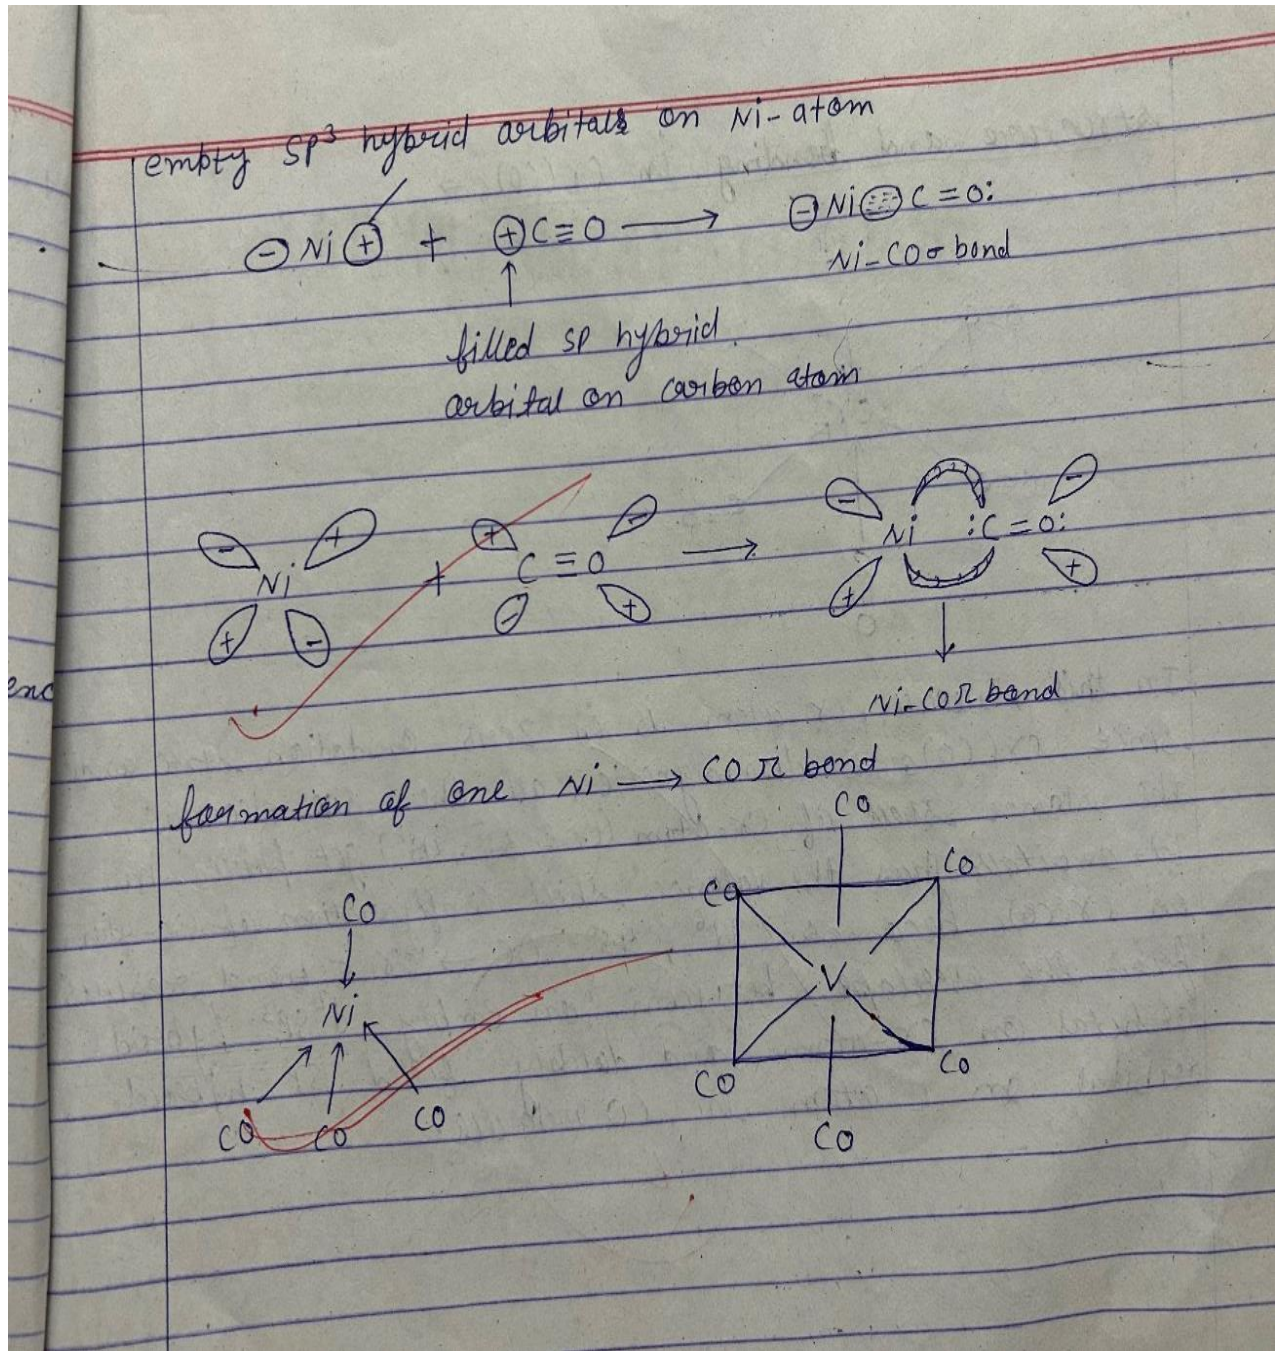 empty SP³ hybrid orbitals on Ni-atom
⊖ Ni ⊕ + ⊕ C≡O ⟶ ⊖ Ni C=O:
Ni-CO σ bond
↑
filled SP hybrid
orbital on carbon atom
- + + - - -
Ni + C≡O ⟶ Ni :C=O:
+ - - + + +
↓
Ni-CO π bond
enc
formation of one Ni ⟶ CO π bond
CO
CO CO
CO
Ni V
CO CO CO
CO CO
CO